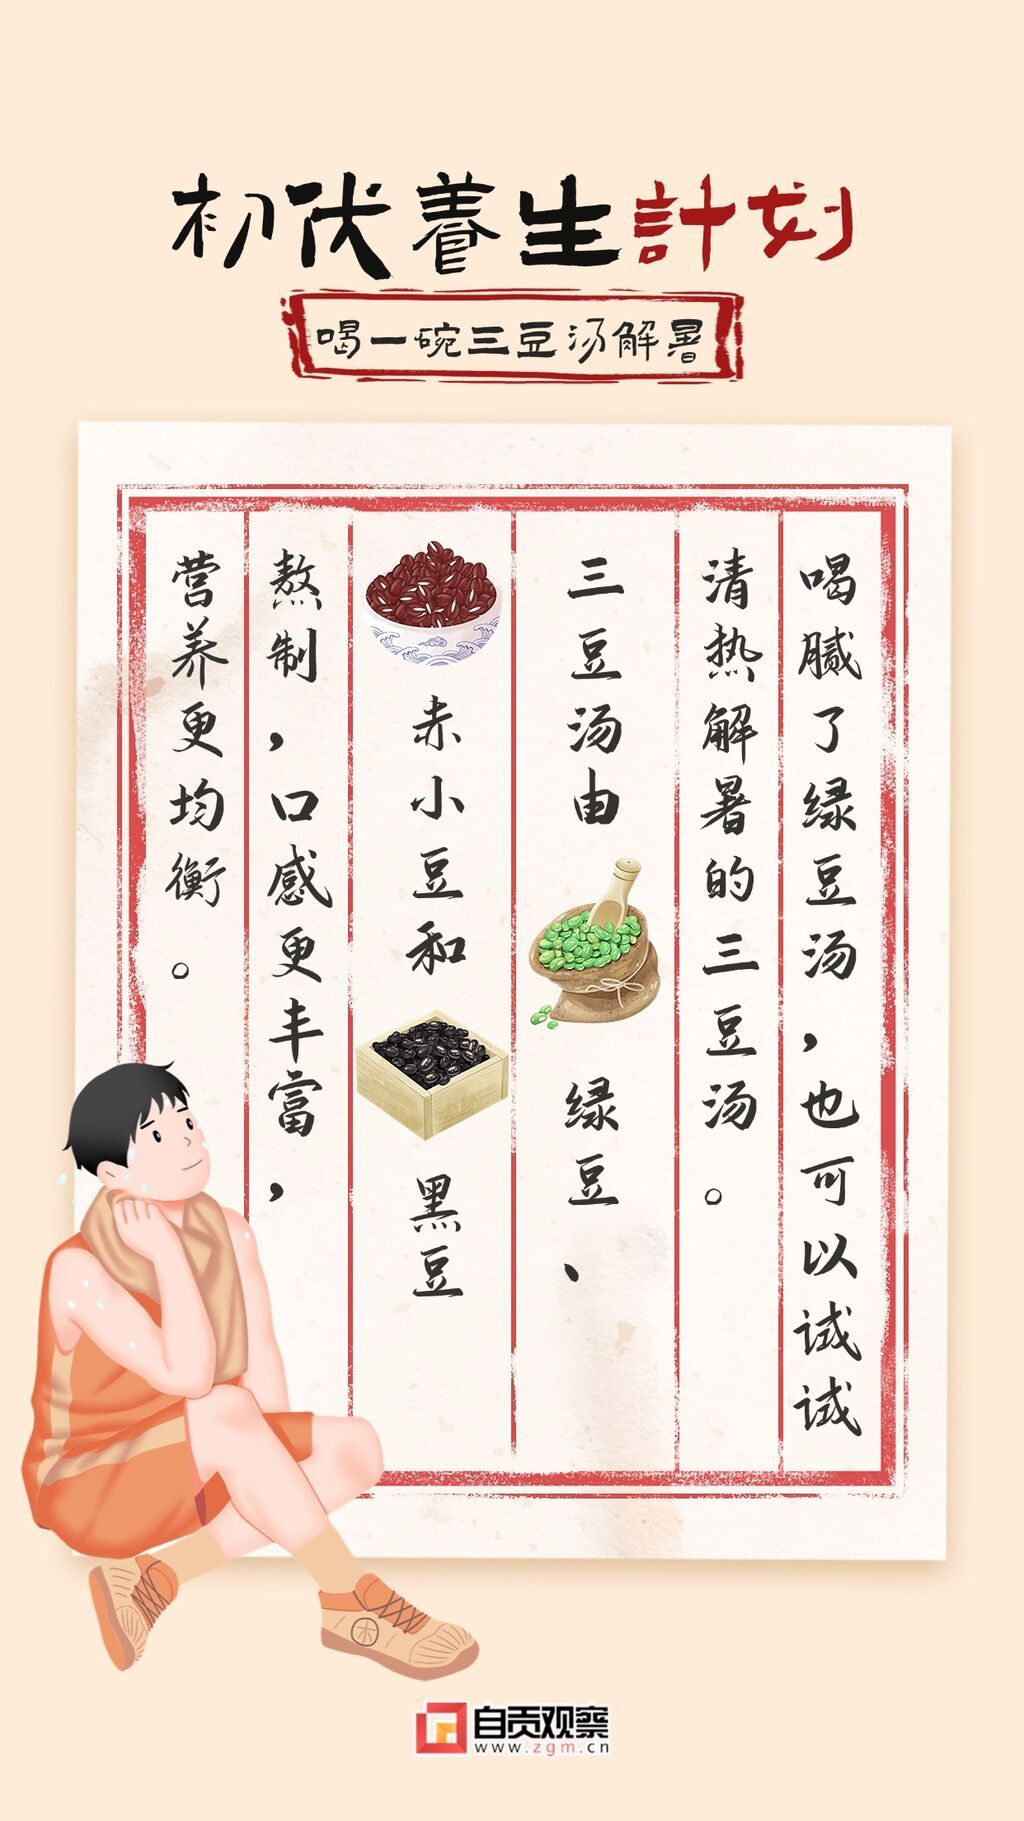 初伏養生計划
喝一碗三豆汤解暑
喝腻了绿豆汤，也可以试试
清热解暑的三豆汤。
三豆汤由绿豆、
赤小豆和黑豆
熬制，口感更丰富，
营养更均衡。
自贡观察
www.zgm.cn